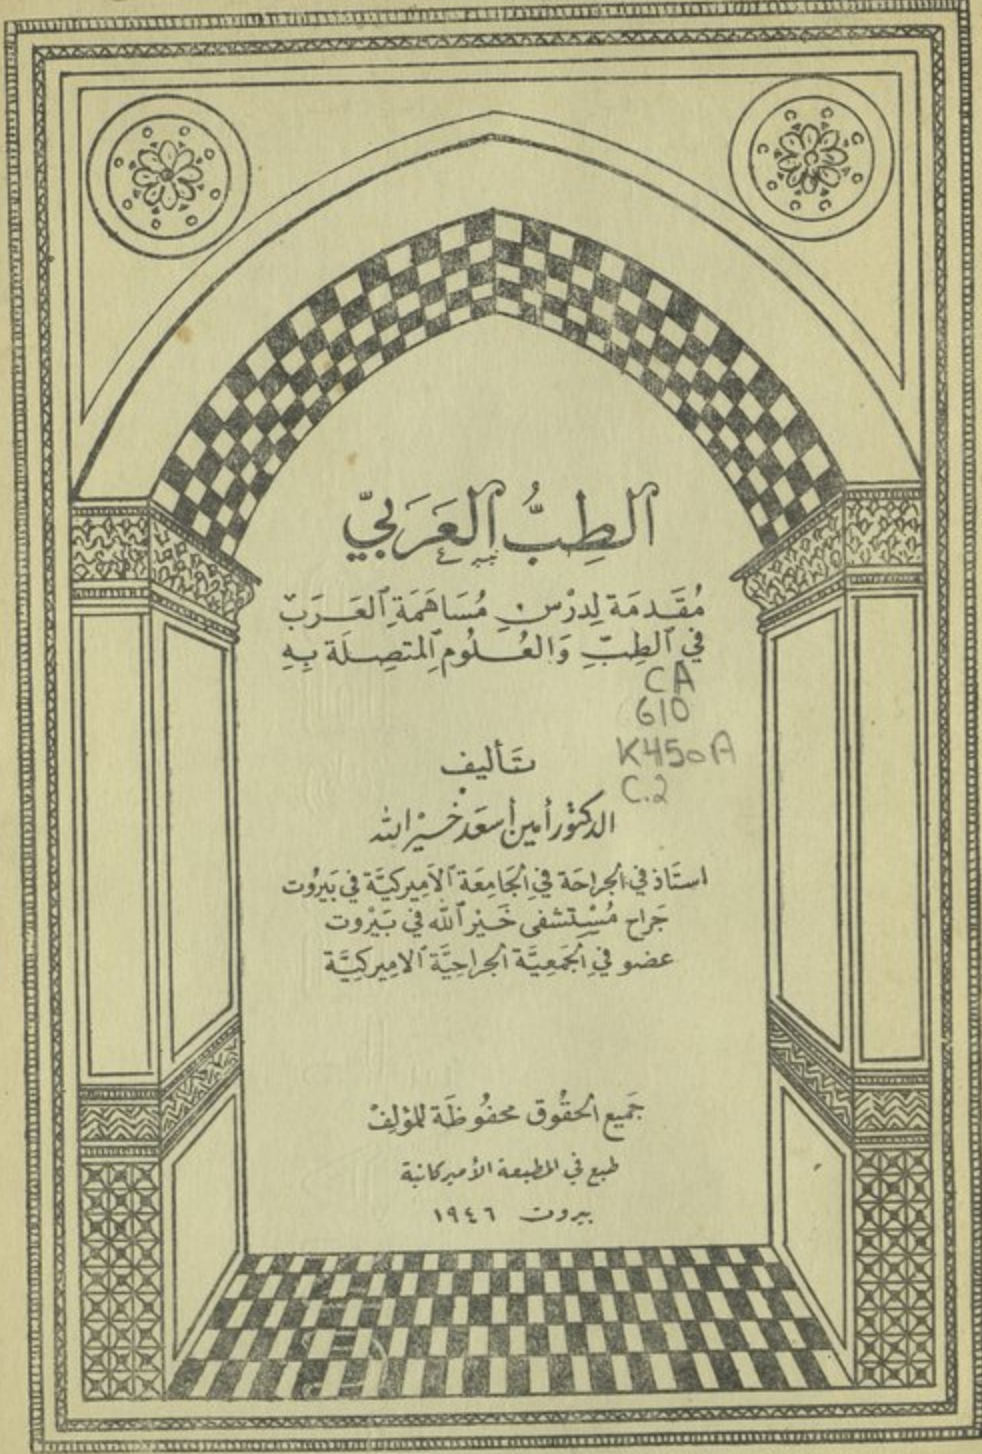 الطِبُّ العَرَبيّ
مُقَدمَة لِدرْسِ مُسَاهَمَةِ العَرَبْ
في الطِبِّ وَالعُلُومِ المتصِلَة بِهِ
CA
610
K450A
C.2
تَأليف
الدكتور أمين أسعَد خَيْر الله
استَاذ في الجراحَة في الجَامِعَة الاَميركيَّة في بَيرُوت
جَراح مُسْتشفى خَيْر الله في بَيْروت
عضو في الجَمعِيَّة الجراحِيَّة الاميركِيَّة
جَميع الحقُوق محفُوظَة للمؤلِفْ
طبع في المطبعة الأميركانية
بيروت ١٩٤٦